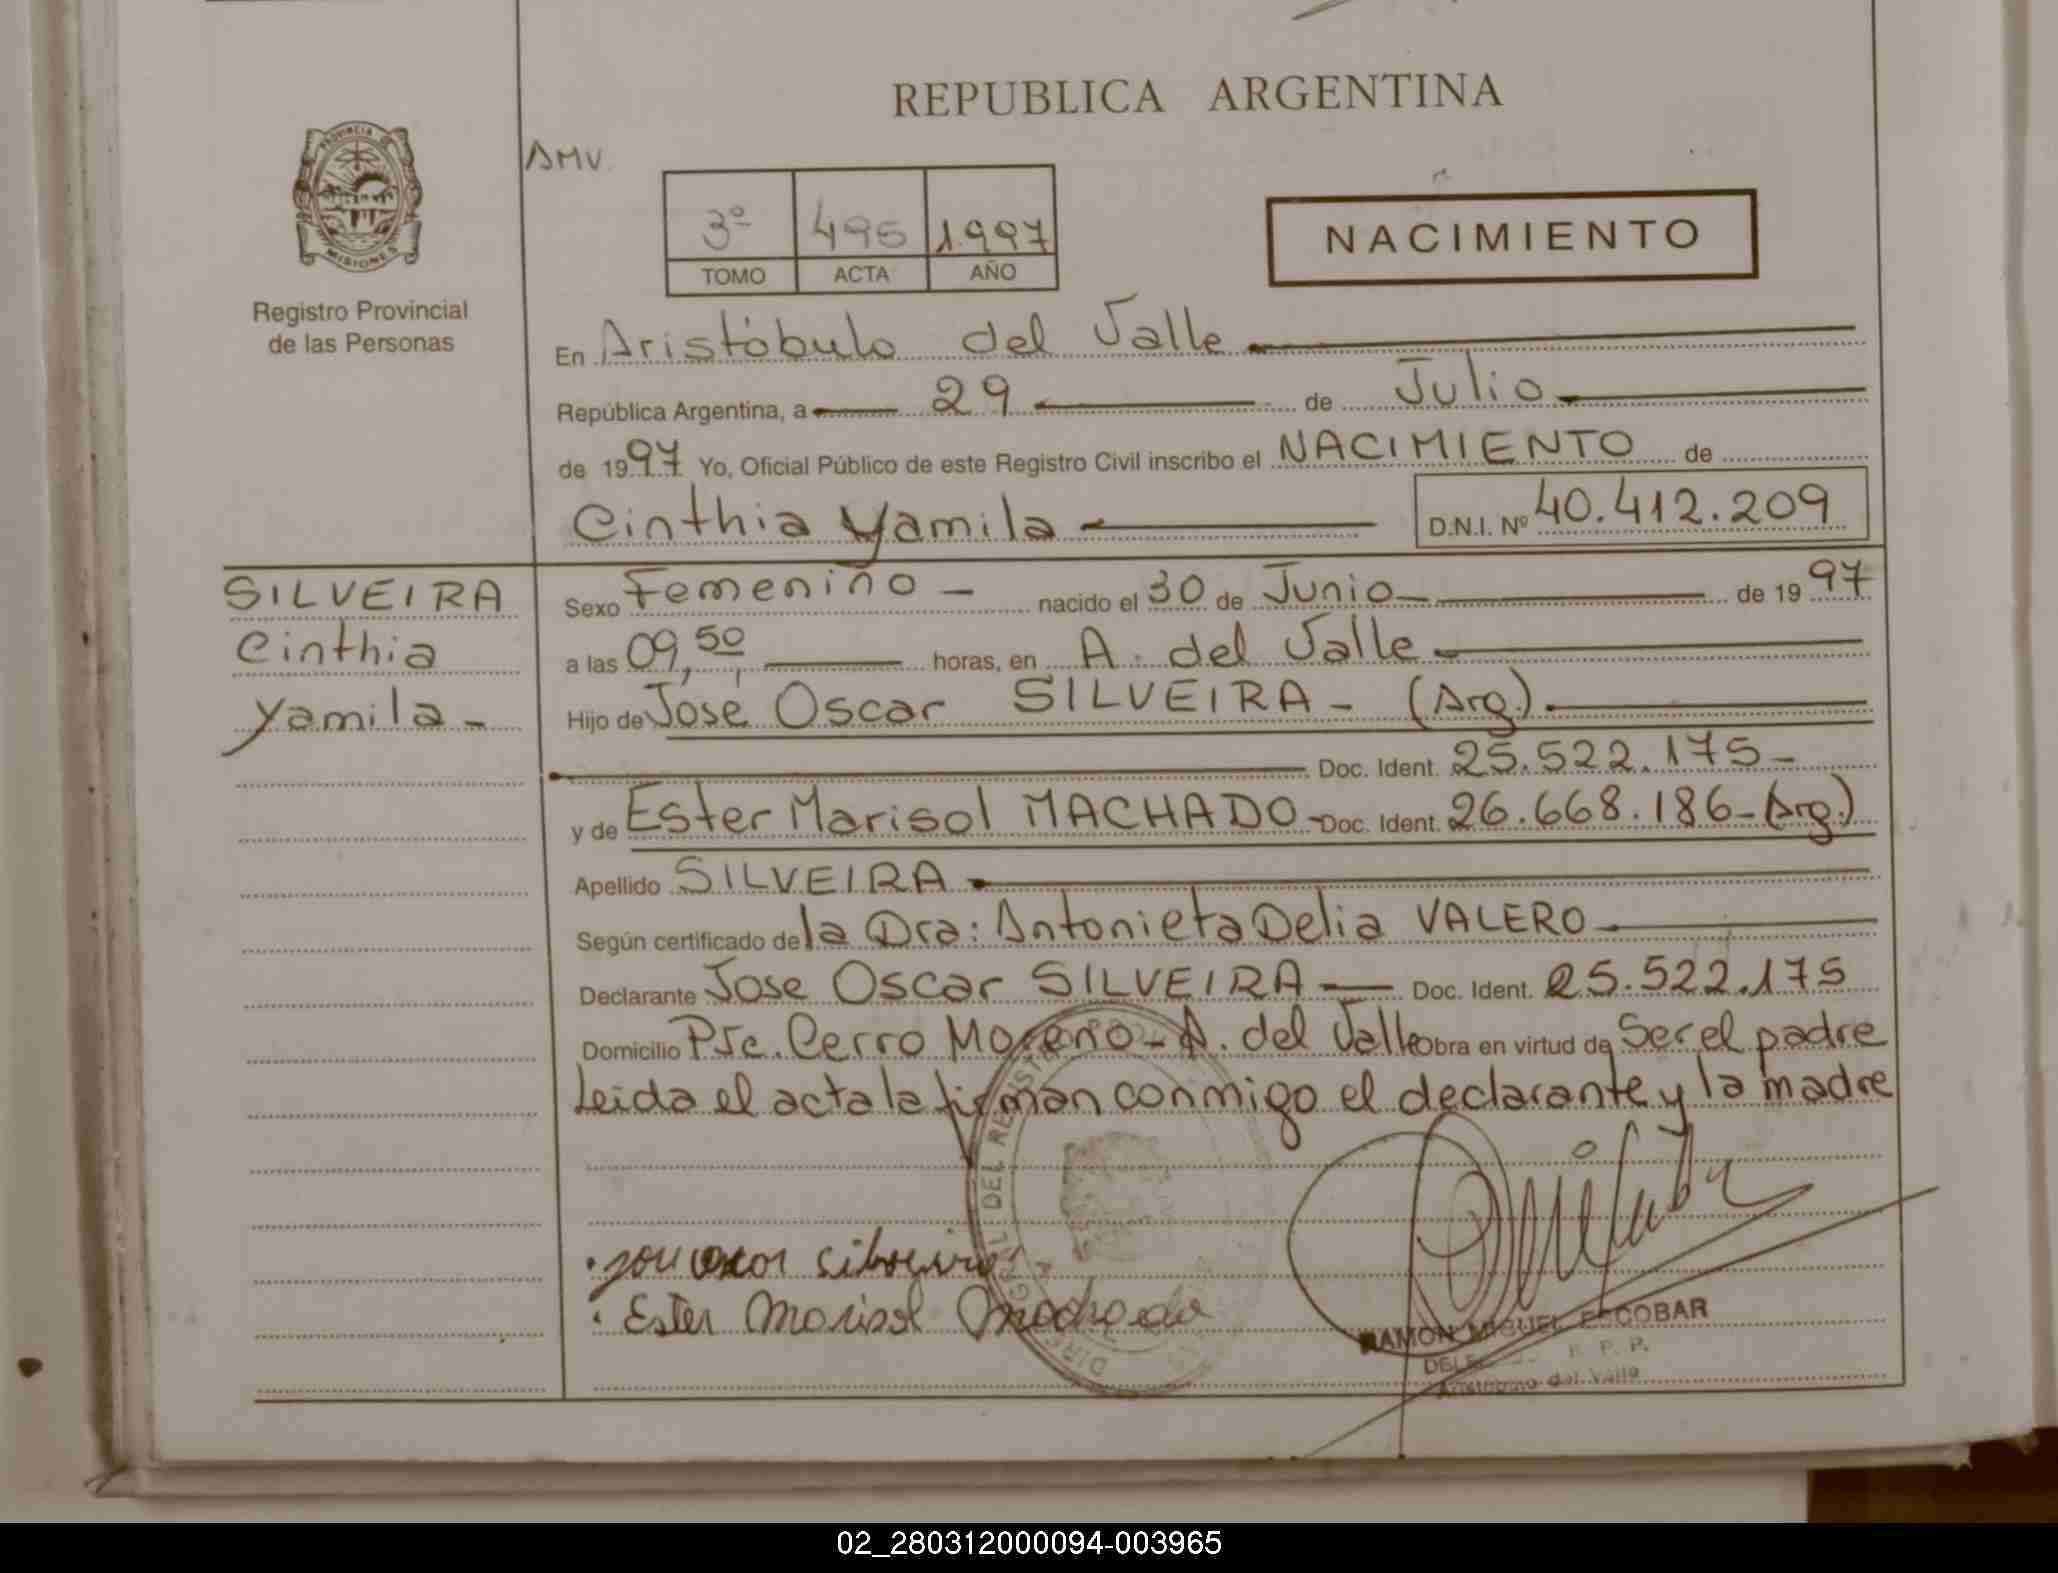 REPUBLICA ARGENTINA
PROVINCIA DE
MISIONES
Registro Provincial
de las Personas
AMV.
3º 495 1997
TOMO ACTA AÑO
NACIMIENTO
En Aristóbulo del Valle
República Argentina, a 29 de Julio
de 1997 Yo, Oficial Público de este Registro Civil inscribo el NACIMIENTO de
Cinthia Yamila D.N.I. Nº 40.412.209
SILVEIRA
Cinthia
Yamila-
Sexo Femenino - nacido el 30 de Junio - de 1997
a las 09,50 horas, en A. del Valle
Hijo de José Oscar SILVEIRA - (Arg.)
Doc. Ident. 25.522.175-
y de Ester Marisol MACHADO - Doc. Ident. 26.668.186-(Arg.)
Apellido SILVEIRA
Según certificado de la Dra: Antonieta Delia VALERO
Declarante Jose Oscar SILVEIRA Doc. Ident. 25.522.175
Domicilio PJe. Cerro Moreno - A. del Valle obra en virtud de Ser el padre
Leida el acta la firman conmigo el declarante y la madre
DEL REGISTRO
Ester Marisol Machado
RAMON MIGUEL ESCOBAR
Aristóbulo del Valle
02_280312000094-003965